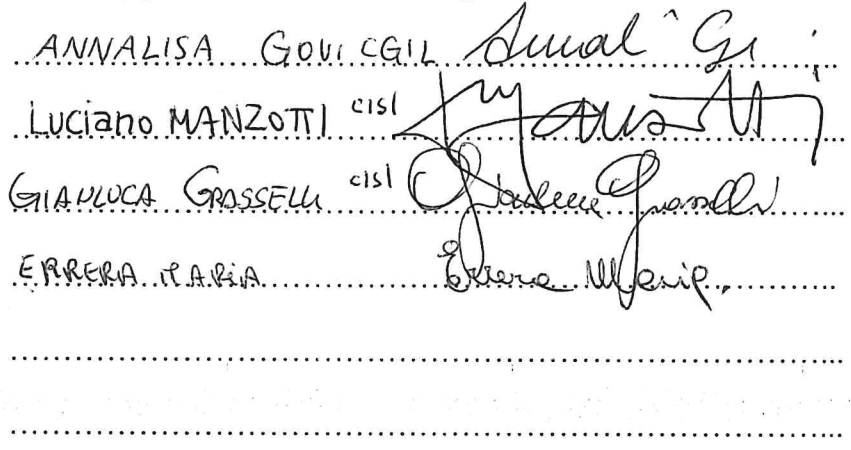 ANNALISA GOVI CGIL
Luciano MANZOTTI cisl Manzotti
GIANLUCA GRASSELLI cisl Gianluca Grasselli
ERRERA MARIA Errera Maria